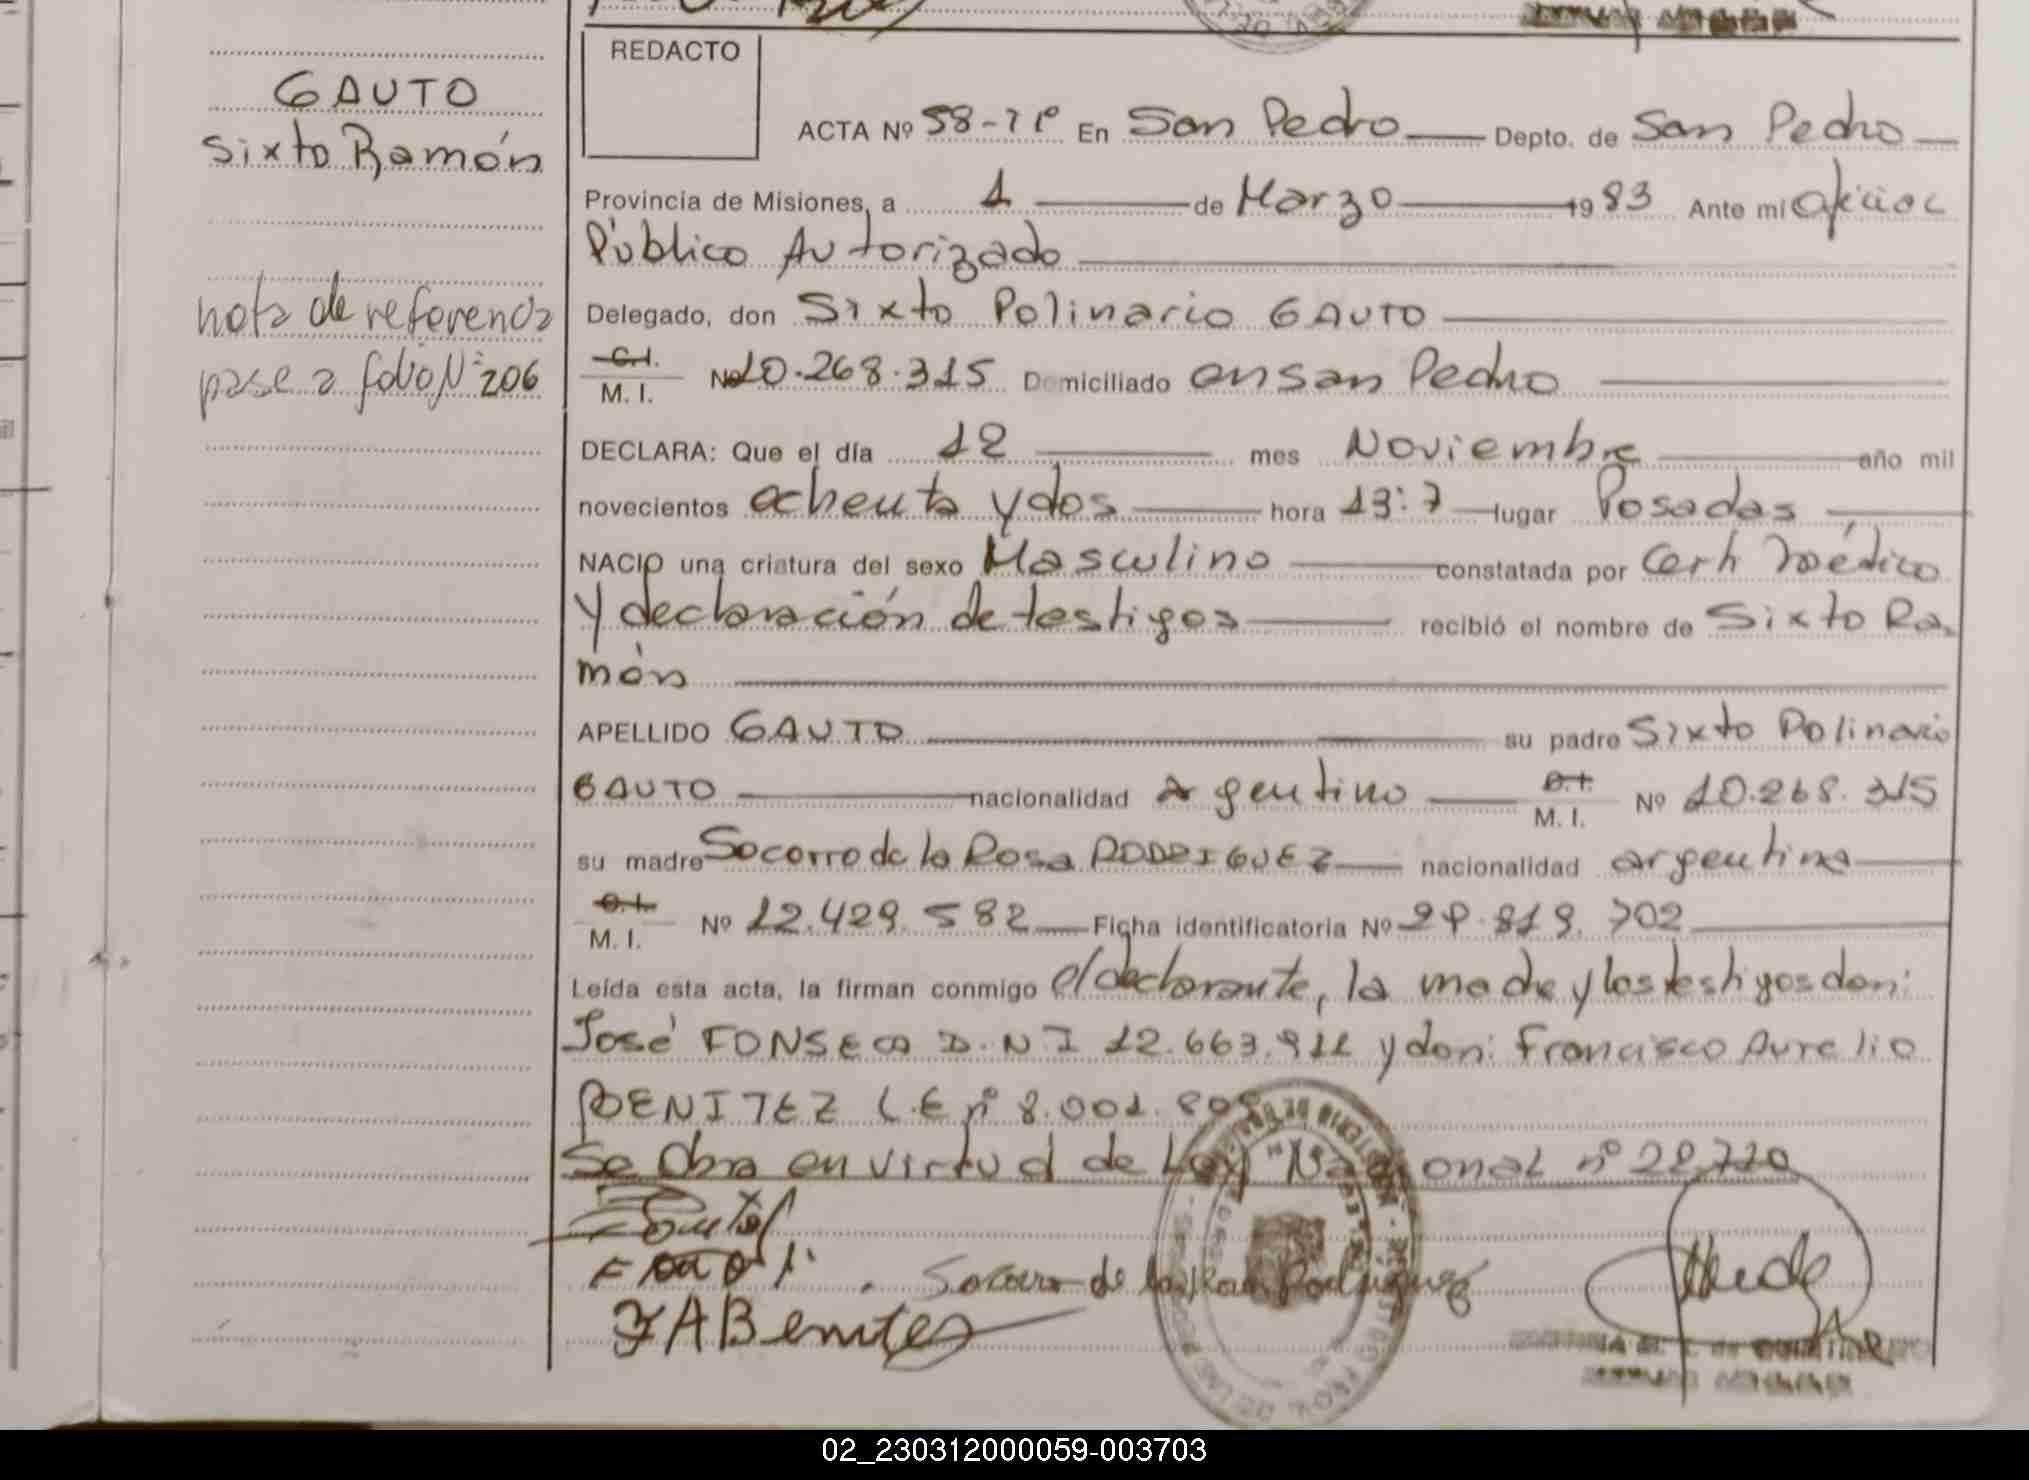 REDACTO
GAUTO
Sixto Ramón
nota de referencia
pase a folio Nº 206
ACTA Nº 58-Tº En San Pedro Depto. de San Pedro
Provincia de Misiones, a 1 de Marzo 1983 Ante mi oficial
Público Autorizado
Delegado, don Sixto Polinario GAUTO
C.I.
M. I. Nº 10.268.315 Domiciliado en San Pedro
DECLARA: Que el día 12 mes Noviembre año mil
novecientos ochenta y dos hora 13:7 lugar Posadas
NACIO una criatura del sexo Masculino constatada por Cert médico
y declaración de testigos recibió el nombre de Sixto Ra-
món
APELLIDO GAUTO su padre Sixto Polinario
GAUTO nacionalidad argentino M. I. Nº 10.268.315
su madre Socorro de la Rosa RODRIGUEZ nacionalidad argentina
M. I. Nº 12.429.582 Ficha identificatoria Nº 29.819.702
Leída esta acta, la firman conmigo el declarante, la madre y los testigos don:
José FONSECA D.N.I 12.663.911 y don: Francisco Aurelio
BENITEZ L.E nº 8.001.
Se Obra en virtud de Ley Nacional nº 22.710
Socorro de la Rosa Rodriguez
F A Benitez
02_230312000059-003703